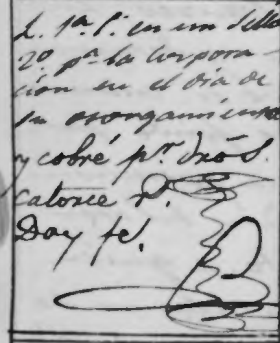 L. 1ª. C. en un Sello
2º pª. la Corpora-
ción en el dia de
su otorgamiento
y cobré pr. dros.
catorce r.
Doy fé.